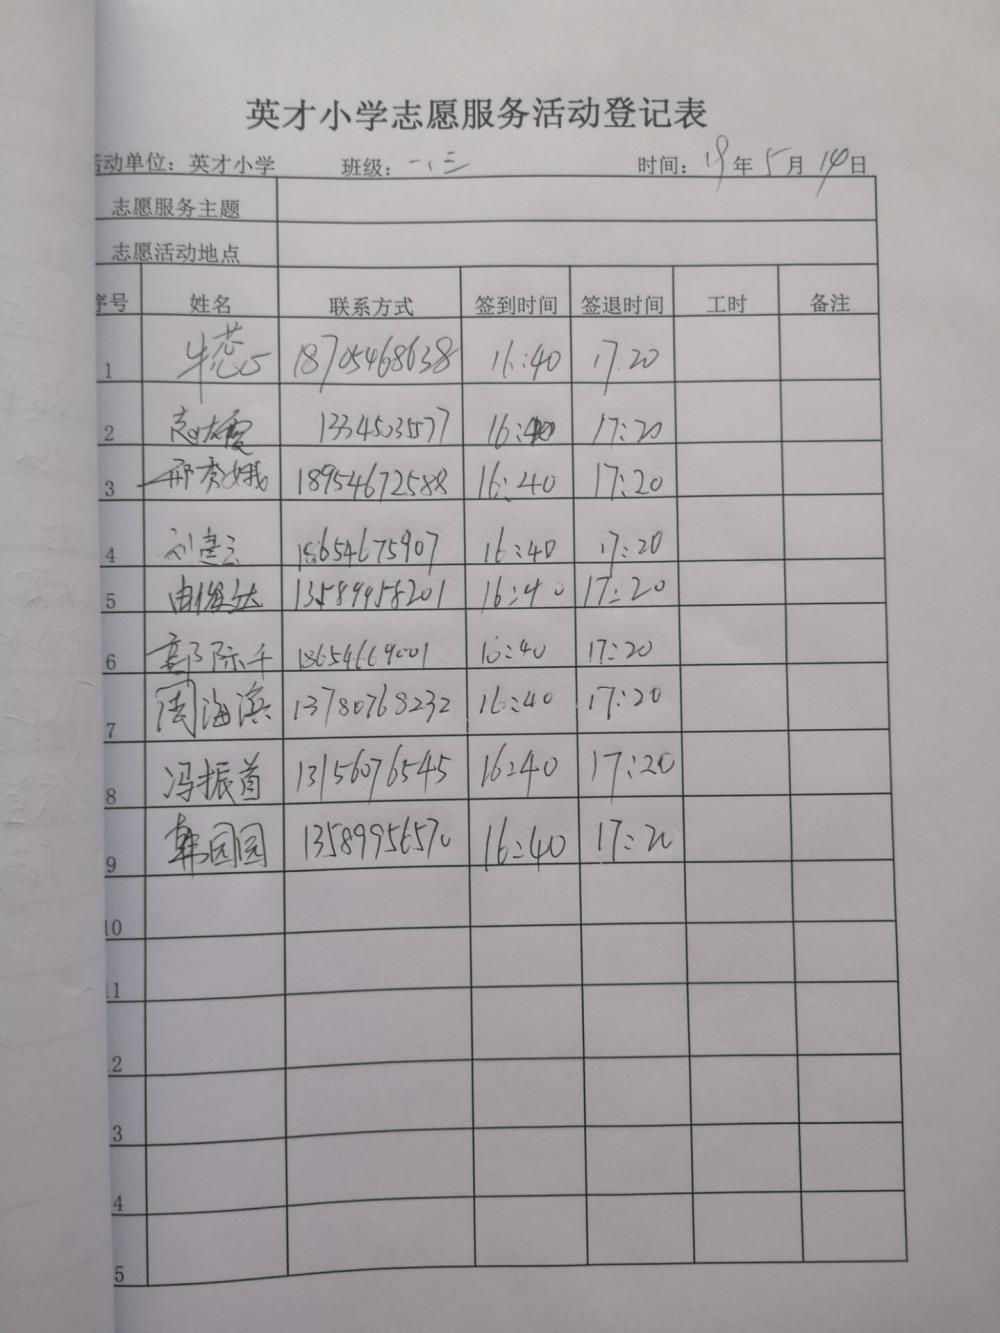 英才小学志愿服务活动登记表
活动单位：英才小学 班级：一、三 时间：19年5月14日
志愿服务主题
志愿活动地点
序号 姓名 联系方式 签到时间 签退时间 工时 备注
1 牛蕊 18705468638 16:40 17:20
2 13345035577 16:40 17:20
3 邢秀娥 18954672588 16:40 17:20
4 刘建云 18654675907 16:40 17:20
5 由俊达 13589958201 16:40 17:20
6 郭际千 18654669001 16:40 17:20
7 周海滨 13780768232 16:40 17:20
8 冯振首 13156076545 16:40 17:20
9 韩园园 13589956570 16:40 17:20
10
11
12
13
14
15